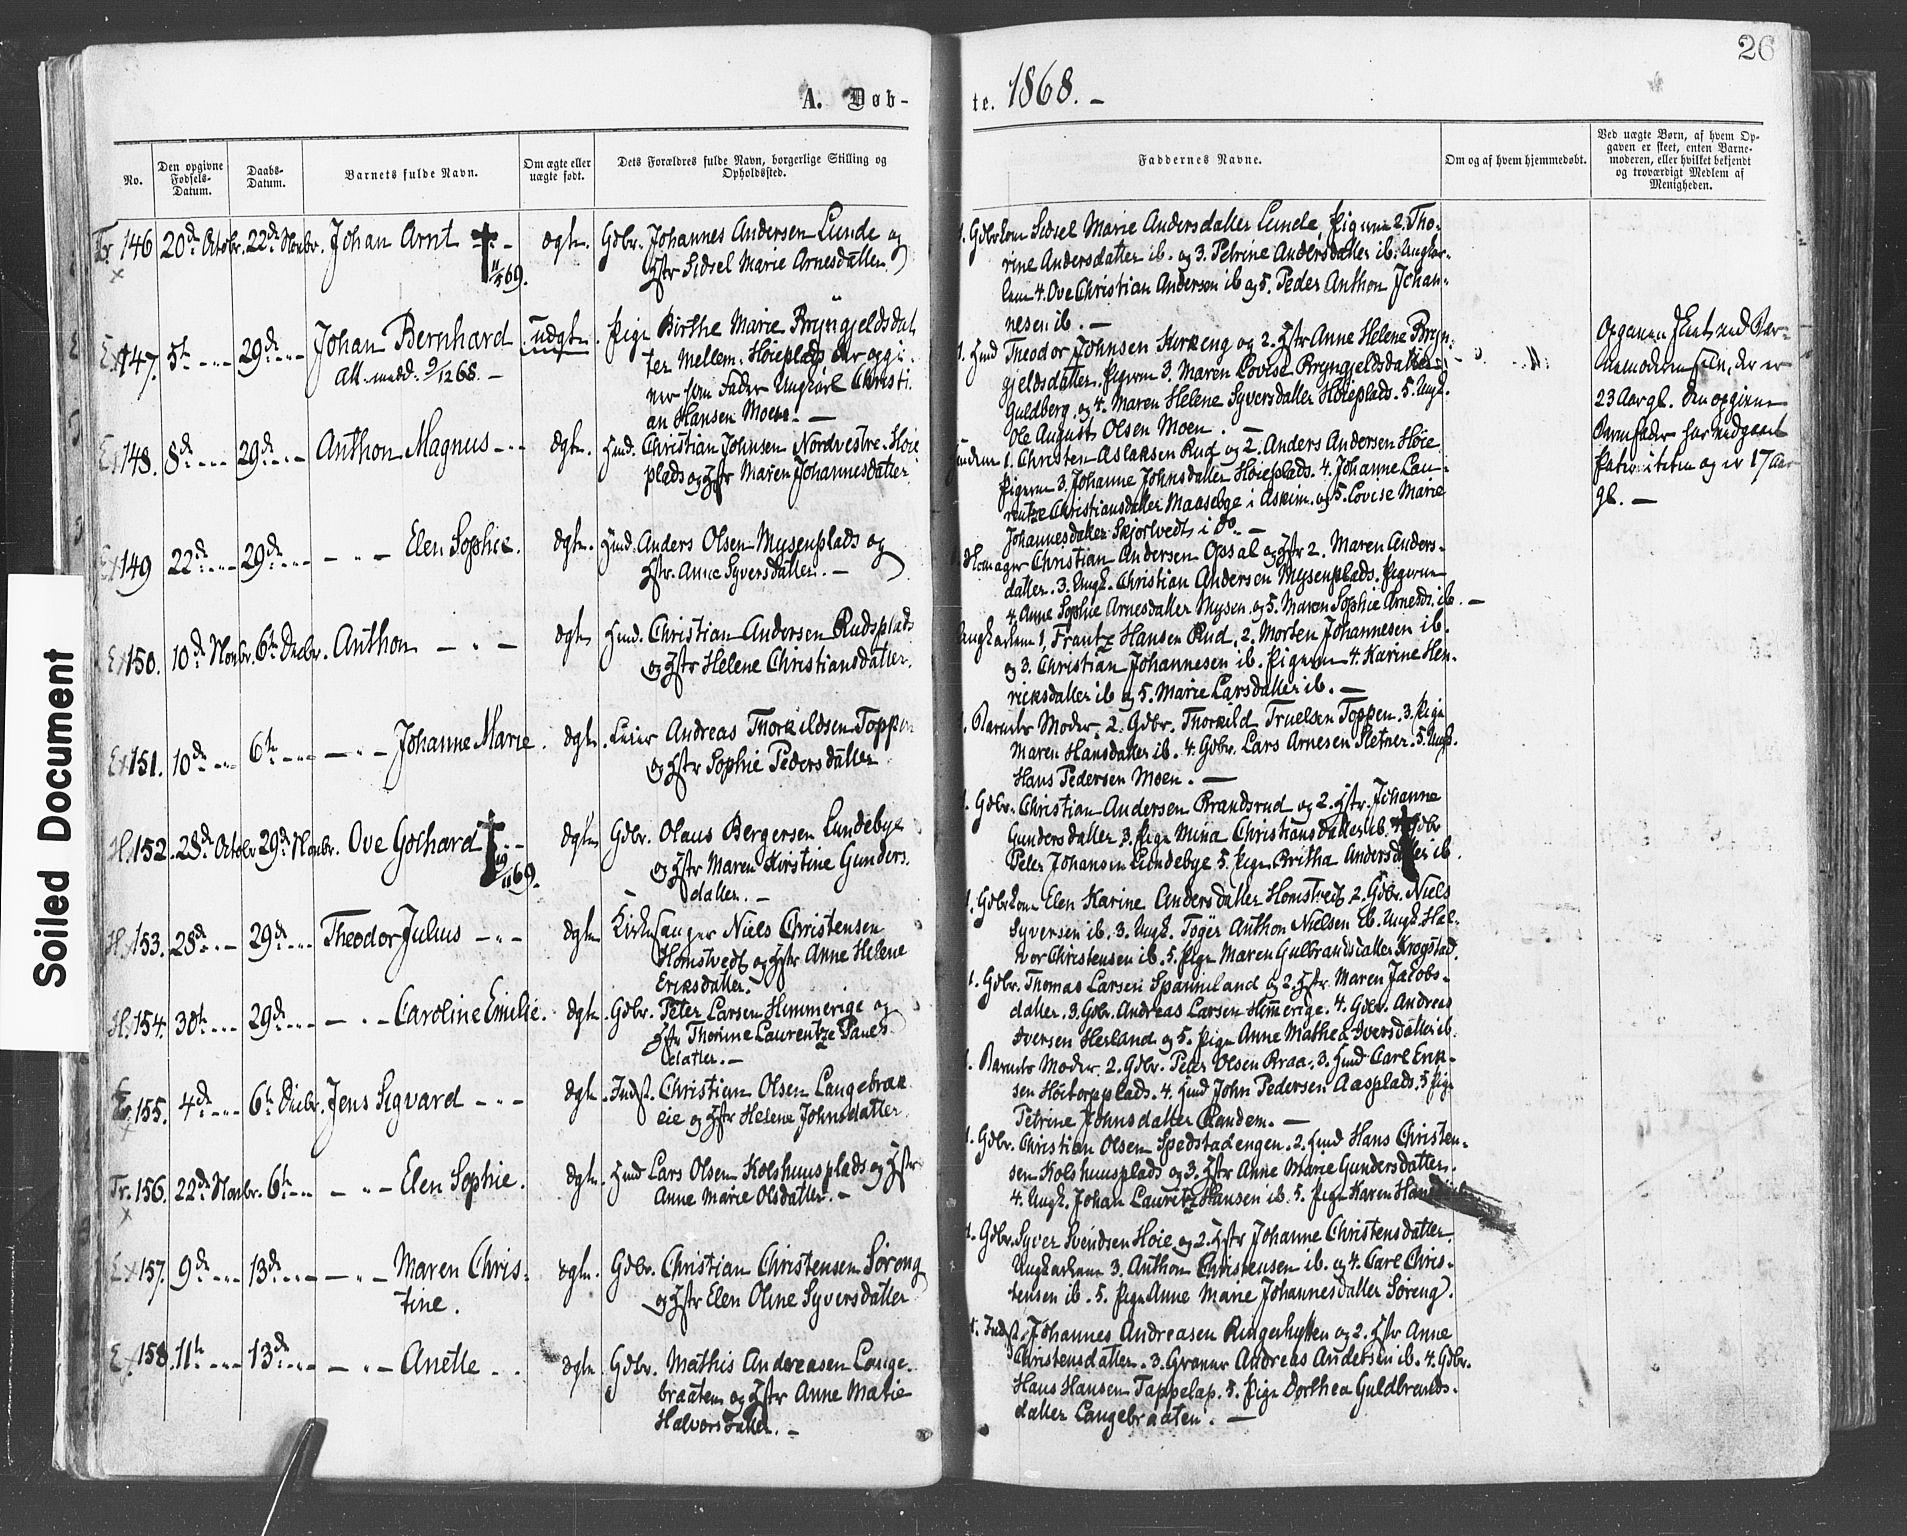 26
A. Døb-
te. 1868. –
No.
Den opgivne Fødsels-Datum.
Daabs-Datum.
Barnets fulde Navn.
Om ægte eller uægte født.
Dets Forældres fulde Navn, borgerlige Stilling og Opholdssted.
Faddernes Navne.
Om og af hvem hjemmedøbt.
Ved uægte Børn, af hvem Op-
gaven er skeet, enten Barne-
moderen, eller hvilket bekjendt
og troværdigt Medlem af
Menigheden.
Soiled Document
Tr. 146 20de Octobr. 22de Novbr. Johan Arnt
11/5 69.
ægte. Gdbr. Johannes Andersen Lunde og
Hstr Sidsel Marie Arnesdatter
1. Gdbrkone Sidsel Marie Andersdatter Lunde, Pigerne 2. Tho-
rine Andersdatter ib. og 3. Petrine Andersdatter ib. Ungkar-
lene 4. Ove Christian Andersen ib og 5. Peder Anthon Johan-
nesen ib. –
147. 5te 29de Johan Bernhard
Att. medd. 9/12 68. –
uægte. Pige Birthe Marie Bryngjeldsdat
ter Mellem-Høieplads der opgi-
ver som Fader Ungkarl Christi-
an Hansen Moen. –
Theodor Johnsen Kirkeng og 2. Hstr Anne Helene Bryn-
gjeldsdatter. Pigerne 3. Maren Lovise Bryngjeldsdatter
Guldberg, og 4. Maren Helene Syversdatter Høieplads. 5. Ungk.
Ole August Olsen Moen. –
Opgaven skeet ved Bar-
nemoderen selv, der er
23 Aar gl. Den opgivne
Barnefader har vedgaaet
Paterniteten og er 17 Aar
gl. –
148. 8de 29de Anthon Magnus
ægte. Hmd. Christian Johnsen Nordvestre-Høie
plads og Hstr Maren Johannesdatter
1. Christen Aslaksen Rud og 2. Anders Andersen Høie
Pigerne 3. Johanne Johnsdatter Høieplads. 4. Johanne Lau-
rentze Christiansdatter Maasebye i Askim. og 5. Lovise Marie
Johannesdatter Skjolvedt i Do. –
149 22de 29de Elen Sophie.
ægte. Hmd. Anders Olsen Mysenplads og
Hstr. Anne Syversdatter. –
Christian Andersen Opsal og Hstr 2. Maren Anders-
datter. 3. Ungk. Christian Andersen Mysenplads. Pigerne
4. Anne Sophie Arnesdatter Mysen og 5. Maren Sophie Arnesdt. ib. –
150. 10de Novbr. 6te Decbr. Anthon
ægte Hmd. Christian Andersen Rudsplads
og Hstr Helene Christiansdatter.
Ungkarlene 1, Frantz Hansen Rud, 2. Morten Johannesen ib.
og 3. Christian Johannesen ib. Pigerne 4. Karine Hen-
ricksdatter ib og 5. Marie Larsdatter ib. –
151. 10de 6te Johanne Marie.
ægte. Leier Andreas Thorkildsen Toppen
og Hstr Sophie Pedersdatter
1. Barnets Moder, 2. Gdbr. Thorkild Truelsen Toppen. 3. Pige
Maren Hansdatter ib. 4. Gdbr. Lars Arnesen Sletner. 5. Ungk.
Hans Pedersen Moen. –
H. 152. 28de Octobr 29de Novbr. Ove Gothard
19/11 69.
ægte Gdbr. Olaus Bergersen Lundebye
og Hstr Maren Kirstine Gunders-
datter. –
1. Gdbr. Christian Andersen Brandsrud og 2. Hstr. Johanne
Gundersdatter 3. Pige Mina Christiansdatter ib. 4. Gdbr
Peter Johansen Lundebye 5. Pige Britha Andersdatter ib.
H. 153. 28de 29de Theodor Julius
ægte Kirkesanger Niels Christensen
Homstvedt og Hstr Anne Helene
Eriksdatter.
1. Gdbrkone Elen Karine Andersdatter Homstvedt 2. Gdbr. Niels
Syversen ib. 3. Ungk. Töger Anthon Nielsen ib. Ungk. Hal-
vor Christensen ib. 5. Pige Maren Gulbrandsdatter Krogstad.
H. 154. 30te 29de Caroline Emilie.
ægte. Gdbr. Peter Larsen Himmerige og
Hstr Thorine Laurentze Pauls
datter. –
1. Gdbr. Thomas Larsen Spanniland og 2. Hstr. Maren Jacobs-
datter. 3. Gdbr. Andreas Larsen Himerige. 4. Gdbr. Andreas
Iversen Herland og 5. Pige Anne Mathea Iversdatter ib.
155. 4de 6te Decbr. Jens Sigvard
ægte. Indst. Christian Olsen Langebraa
eie og Hstr Helene Johnsdatter.
1. Barnets Moder. 2. Gdbr. Peter Olsen Braa. 3. Hmd Carl Erik-
sen Høitorpplads. 4. Hmd John Pedersen Aasplads. 5 Pige
Petrine Johnsdatter Randem. –
Tr. 156. 22de Novbr. 6te Elen Sophie.
ægte. Hmd Lars Olsen Kolshuusplads og Hstr
Anne Marie Olsdatter. –
1. Gdbr. Christian Olsen Spedstadengen. 2. Hmd Hans Christen-
sen Kolshuusplads og 3. Hstr Anne Marie Gundersdatter.
4. Ungk. Johan Lauritz Hansen ib. 5. Pige Karen
157. 9de 13de Maren Chris-
tine.
ægte. Gdbr. Christian Christensen Søreng
og Hstr Elen Oline Syversdatter
1. Gdbr. Syver Svendsen Høie og 2. Hstr Johanne Christensdatter.
Ungkarlene 3. Anthon Christensen ib. og 4. Carl Chris-
tensen ib. 5. Pige Anne Marie Johannesdatter Søreng.
158. 11te 13de Anette
ægte. Gdbr. Mathis Andreasen Lange-
braaten og Hstr Anne Marie
Halvorsdatter. –
1. Indst. Johannes Andreasen Ringerhytten og 2. Hstr Anne
Christensdatter. 3. Andreas Andersen ib. 4. Gdbr.
Hans Hansen Tappelap. 5. Pige Dorthea Guldbrands-
datter Langebraaten. –